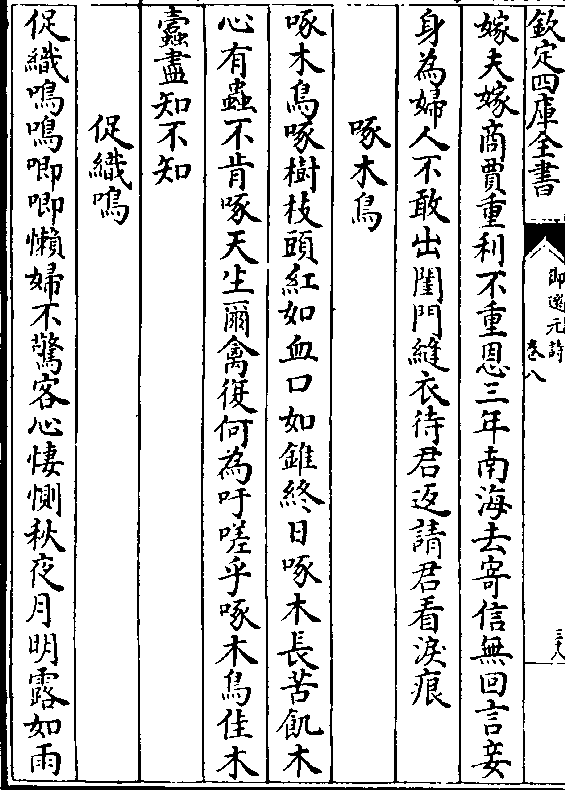 欽定四庫全書
御選元詩
卷八
三十八
嫁夫嫁商賈重利不重恩三年南海去寄信無回言妾
身為婦人不敢出閨門縫衣待君返請君看淚痕
啄木鳥
啄木鳥啄樹枝頭紅如血口如錐終日啄木長苦飢木
心有蟲不肯啄天生爾禽復何為吁嗟乎啄木鳥佳木
蠧盡知不知
促織鳴
促織鳴鳴唧唧懶婦不驚客心悽惻秋夜月明露如雨